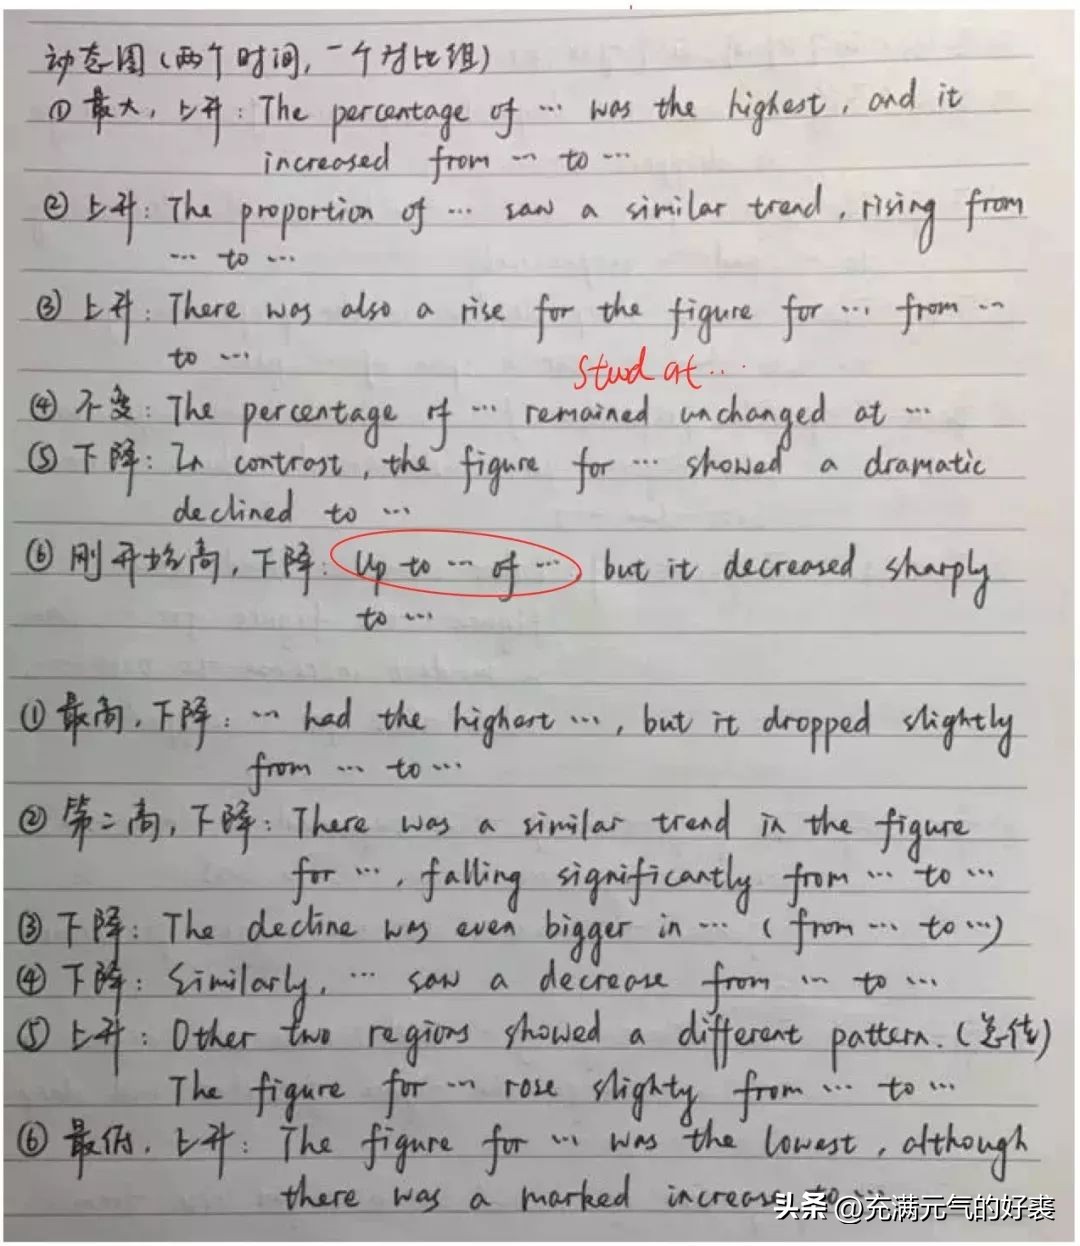 动态图(两个时间,一个对比组)
① 最大,上升: The percentage of … was the highest, and it
increased from … to …
② 上升: The proportion of … saw a similar trend, rising from
… to …
③ 上升: There was also a rise for the figure for … from …
to …
stud at …
④ 不变: The percentage of … remained unchanged at …
⑤ 下降: In contrast, the figure for … showed a dramatic
declined to …
⑥ 刚开始高,下降: Up to … of …, but it decreased sharply
to …
① 最高,下降: … had the highest …, but it dropped slightly
from … to …
② 第二高,下降: There was a similar trend in the figure
for …, falling significantly from … to …
③ 下降: The decline was even bigger in … (from … to …)
④ 下降: Similarly, … saw a decrease from … to …
⑤ 上升: Other two regions showed a different pattern. (总结)
The figure for … rose slighty from … to …
⑥ 最低,上升: The figure for … was the lowest, although
there was a marked increase to …
头条 @充满元气的好裴